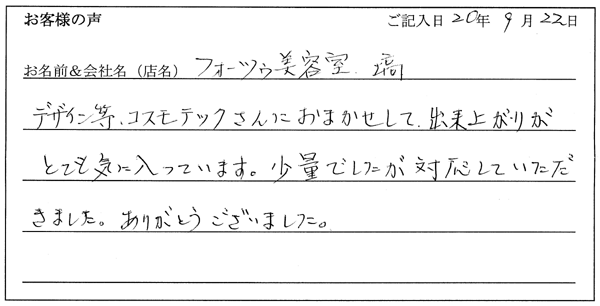 お客様の声 ご記入日 20年 9月 22日
お名前&会社名（店名） フォーツゥ美容室
デザイン等、コスモテックさんにおまかせして、出来上がりが
とても気に入っています。少量でしたが対応していただ
きました。ありがとうございました。